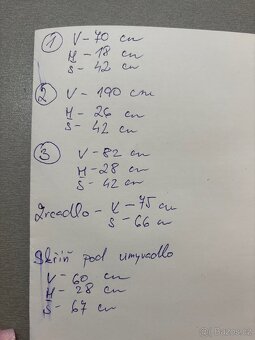 1 V-70 cm
H-18 cm
S-42 cm
2 V-190 cm
H-26 cm
S-42 cm
3 V-82 cm
H-28 cm
S-42 cm
Zrcadlo-V-75 cm
S-66 cm
Skříň pod umyvadlo
V-60 cm
H-28 cm
S-67 cm